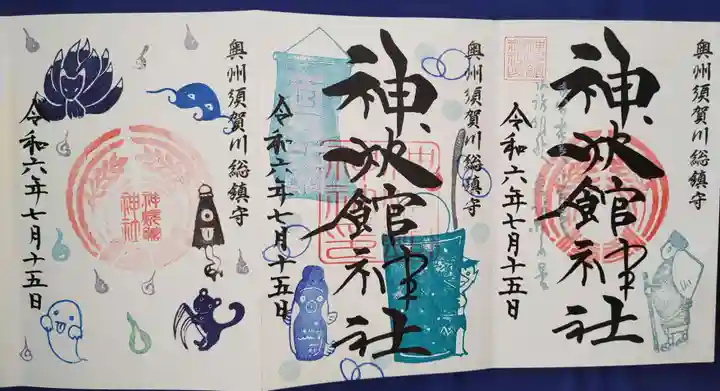 奥州須賀川総鎮守
神炊館神社
令和六年七月十五日
奥州須賀川総鎮守
神炊館神社
令和六年七月十五日
奥州須賀川総鎮守
神炊館神社
令和六年七月十五日